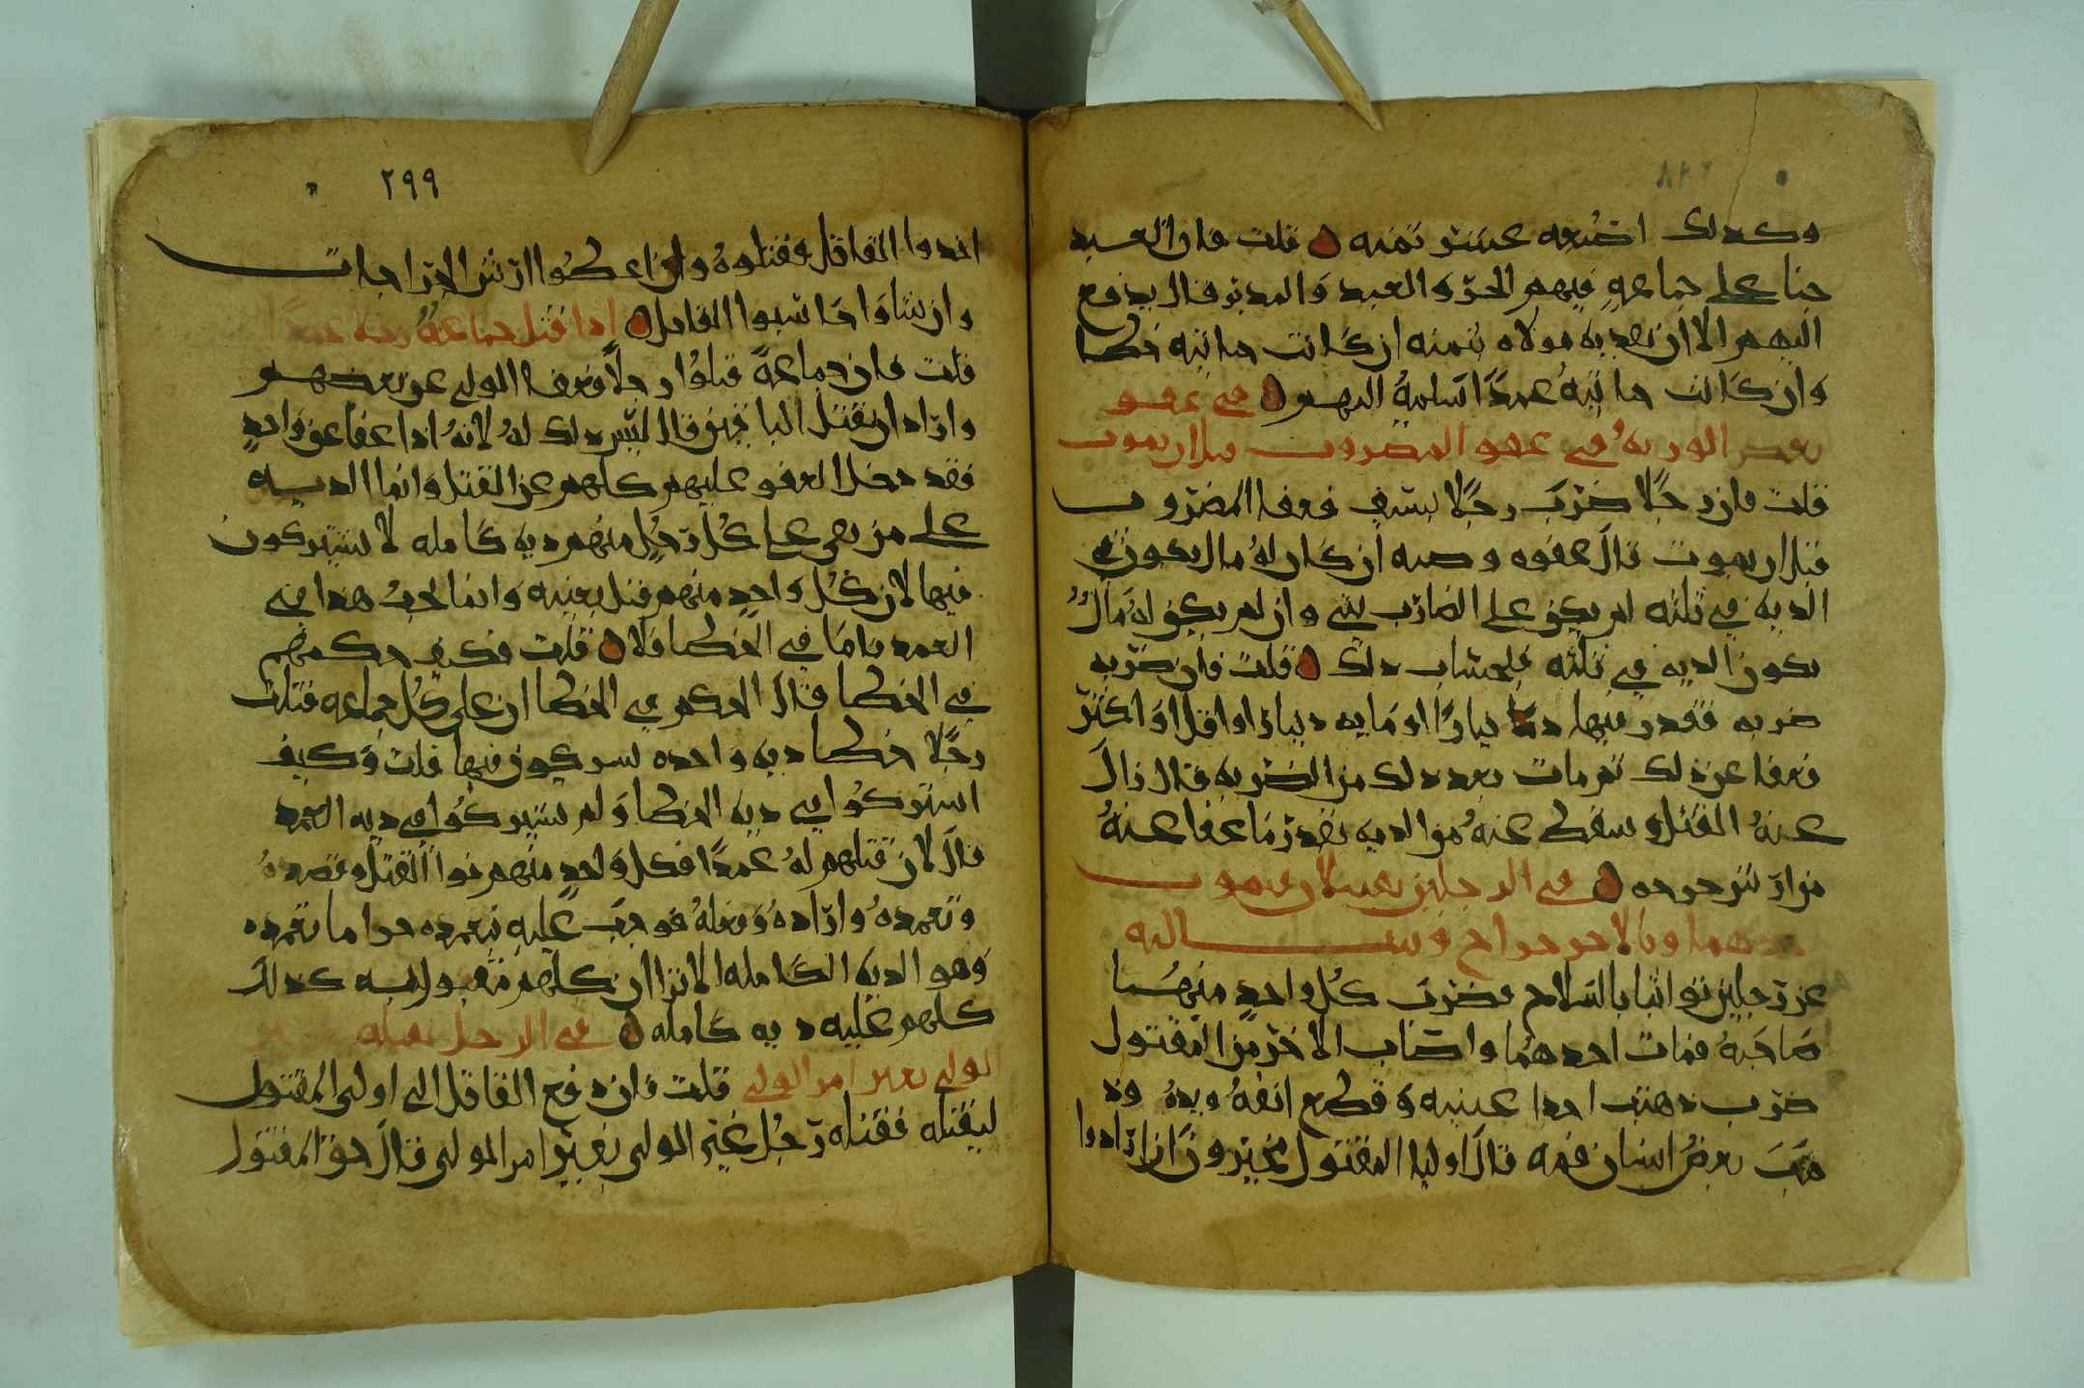 وكذلك اصبعه عشر ثمنه قلت فان العبد
جنا على جماعةٍ فيهم الحرّ والعبد والمدبر قال يدفع
اليهم الا ان يفديه مولاه بثمنه ان كانت جنايته خطا
وان كانت جنايته عمدًا اسلمهُ اليهم في عفو
بعض الورثه في عفو المضروب قبل ان يموت
قلت فان رجلًا ضرب رجلًا بسيف فعفا المضروب
قبل ان يموت قال عفوه وصيه ان كان لهُ مال يكون
الديه في ثلثه لم يكن على الضارب شي وان لم يكن له مالٌ
يكون الديه في ثلثه فبحساب ذلك قلت فان ضربه
ضربه فقدر فيها دينارًا او مايه دينار او اقل او اكثر
فعفا عن ذلك ثم مات بعد ذلك من الضربه قال زال
عنهُ القتل وسقط عنهُ من الديه بقدر ما عفا عنهُ
من ارش جرحه في الرجلين يقتتلان فيموت
احدهما وبالاخر جراح وسالته
عن رجلين تواثبا بالسلاح فضرب كل واحدٍ منهُما
صاحبهُ فمات احدهُما واصاب الاخر من المقتول
ضرب ذهبت احدا عينيه وقطع انفهُ ويدهُ وذ
هب بعضُ اسنان فمه قال اوليا المقتول مخيرون ان ارادوا
٢٩٩
اخذوا القاتل فقتلوهُ وان اعطوا ارش الجراحات
وان شاوا حاسبوا القاتل اذا قتل جماعةٌ رجلا عمدًا
قلت فان جماعةً قتلوا رجلًا فعفا الولي عن بعضهم
واراد ان يقتل الباقين قال ليس ذلك لهُ لانهُ اذا عفا عن واحدٍ
فقد دخل العفو عليهم كلهم عن القتل وانما الديه
على من بقي على كُل رجُلٍ منهم ديه كامله لا يشتركون
فيها لان كُل واحدٍ منهم قتل بعينه وانما يجبُ هذا في
العمد فاما في الخطا فلا قلت فكيف حكمهم
في الخطا قال الحكم في الخطا ان على كُل جماعه قتلت
رجلًا خطا ديه واحده يشتركون فيها قلت وكيف
اشتركوا في ديه الخطا ولم يشتركوا في ديه العمد
قال لان قتلهم لهُ عمدًا فكل واحدٍ منهم نوا القتل وقصدهُ
وتعمدهُ وارادهُ وفعلهُ فوجب عليه بتعمده جزا ما تعمده
وهو الديه الكامله الا ترا ان كلهم به كذلك
كلهم عليه ديه كامله في الرجل يقتله غير
الولي بغير امر الولي قلت فان دفع القاتل الى اوليا المقتول
ليقتله فقتله رجُل غير الولي بغير امر الولي قال حق المقتول